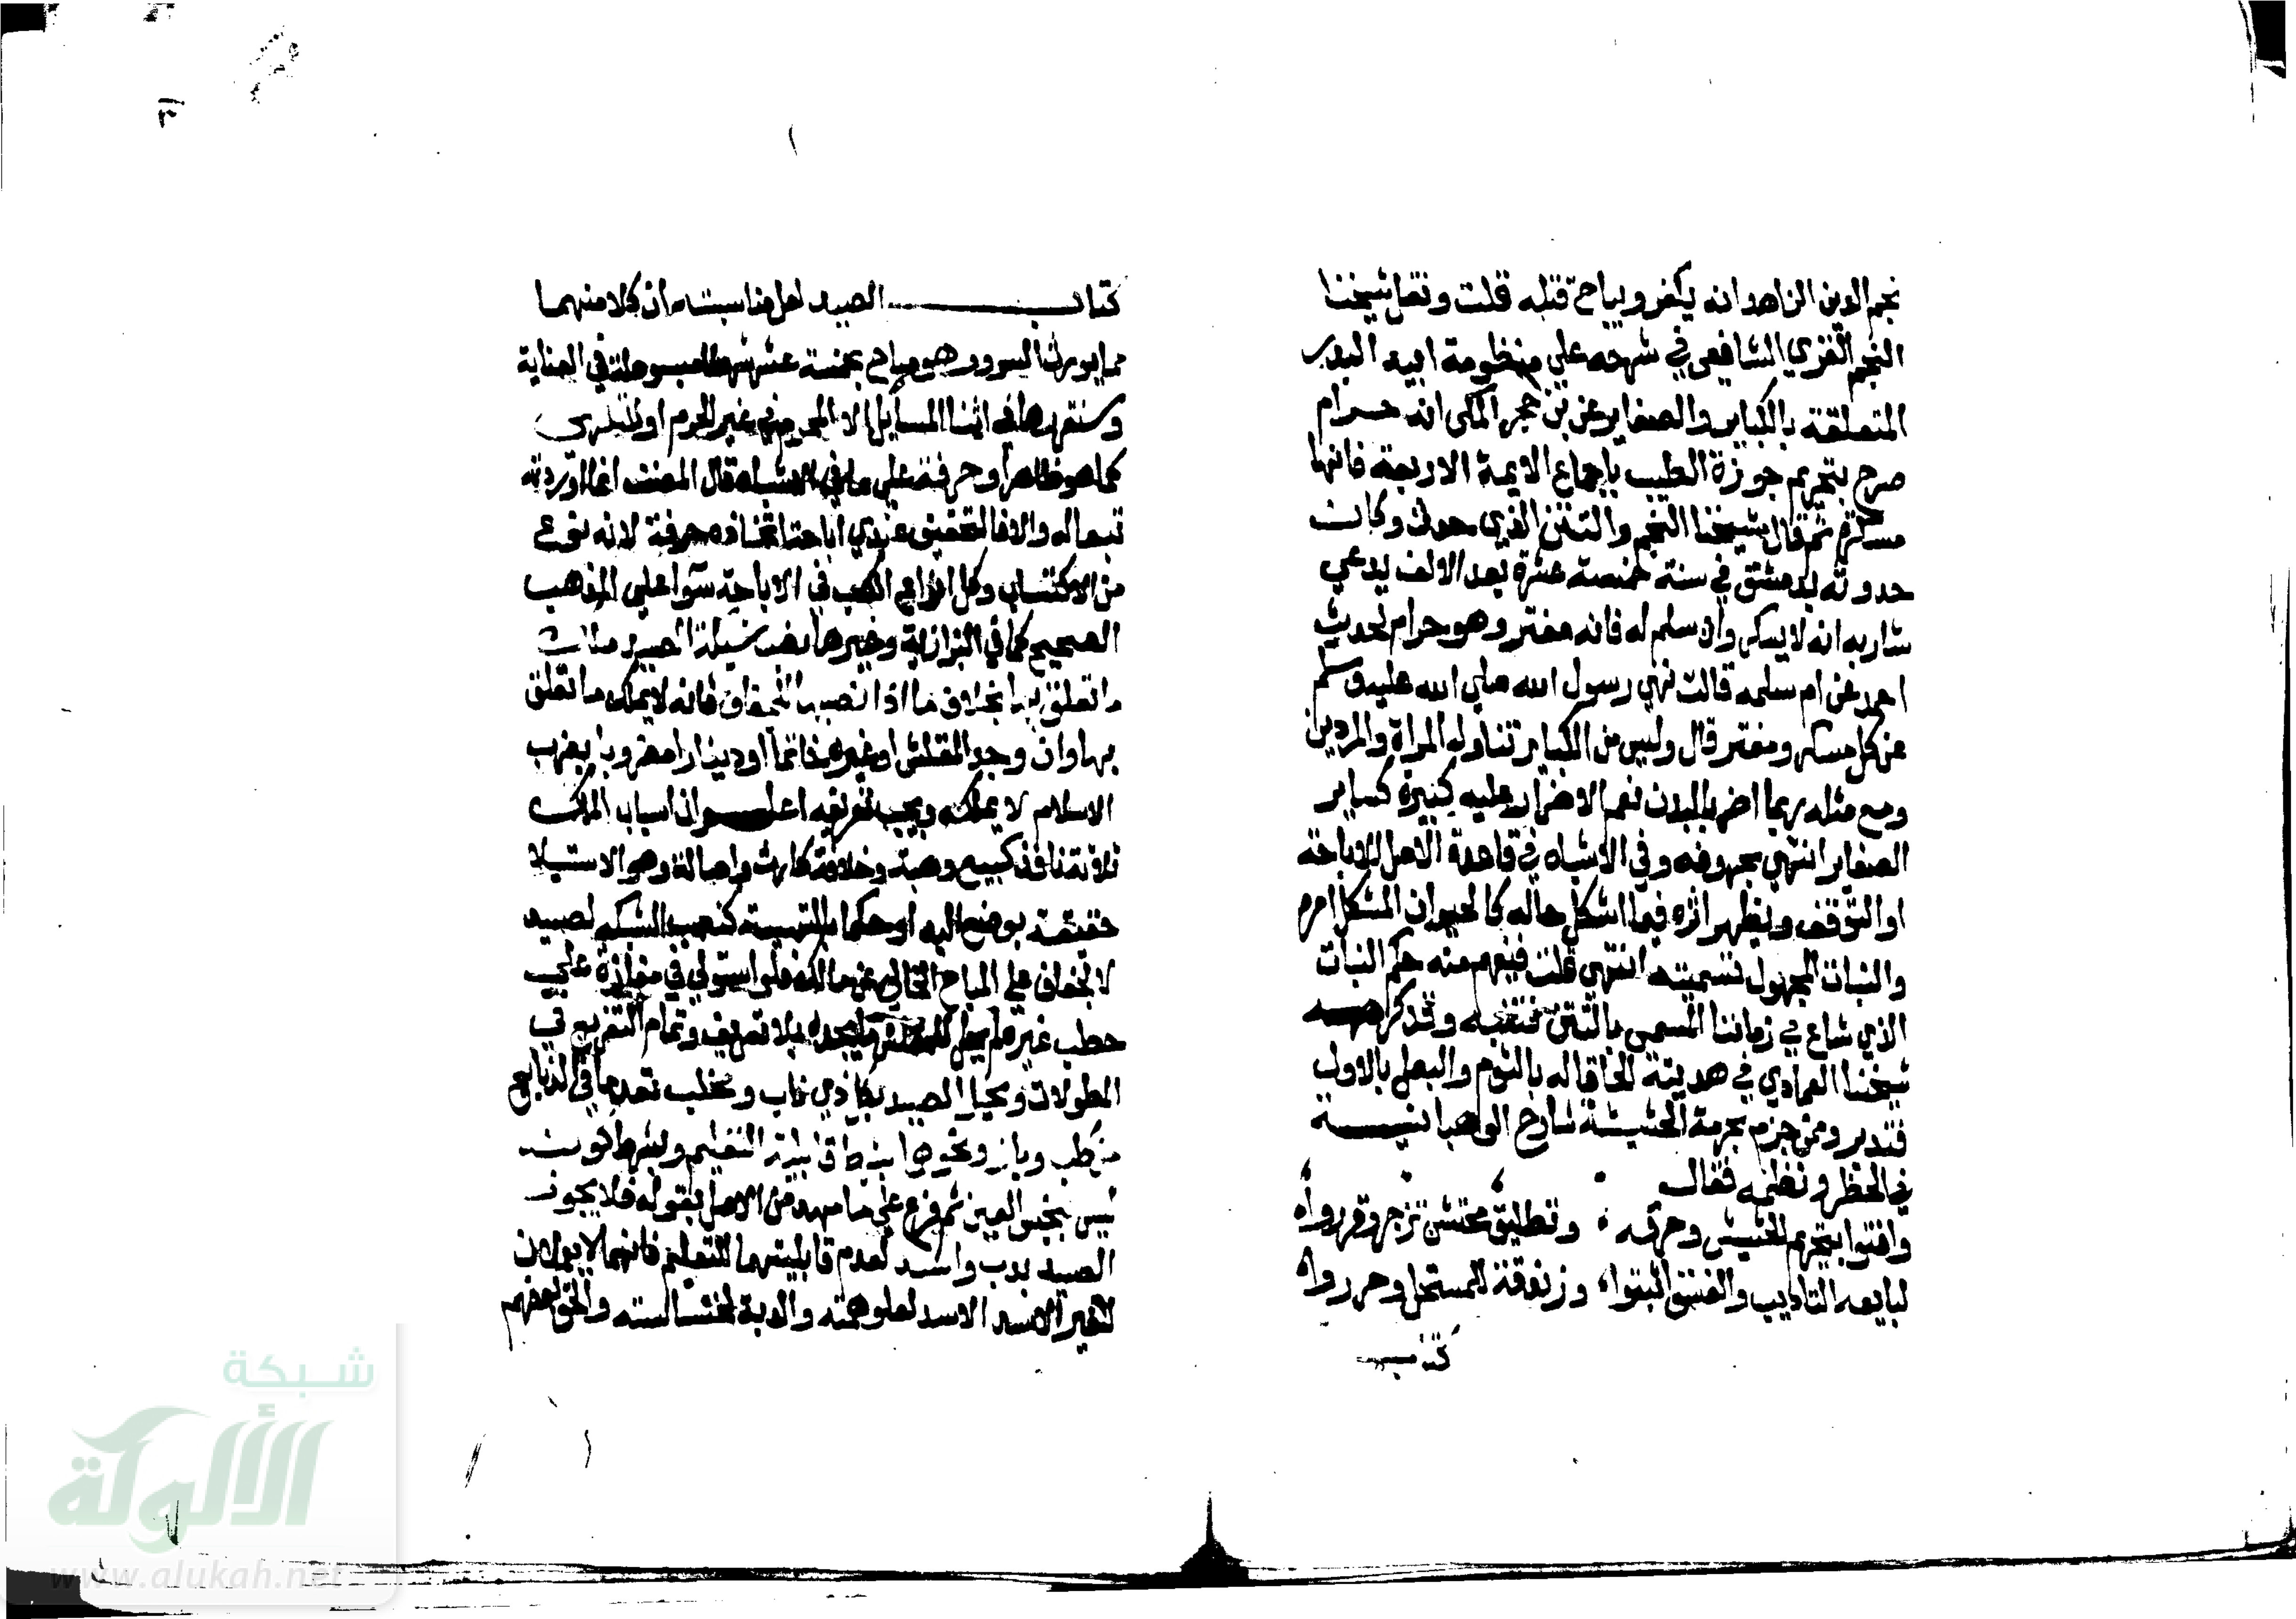 نجم الدين الزاهد انه يكفر ويباح قتله قلت ونقل شيخنا
النجم الغزي الشافعي في شرحه على منظومة ابيه البدر
المتعلقة بالكباير والصغاير عن بن حجر المكي انه حرام
صرح بتحريم جوزة الطيب باجماع الايمة الاربعة فانها
مسكرة ثم قال شيخنا النجم والتتن الذي حدث وكان
حدوثه بدمشق في سنة خمسة عشرة بعد الالف يدعي
شاربه انه لا يسكر وان سلم له فانه مفتر وهو حرام لحديث
احمد عن ام سلمه قالت نهى رسول الله صلى الله عليه وسلم
عن كل مسكر ومفتر قال وليس من الكباير تناوله المراة والمرتين
ومع مثله ربما اضر بالبدن نعم الاضرار عليه كبيرة كساير
الصغاير انتهى بحروفه وفي الاشباه في قاعدة الاصل الاباحة
او التوقف ويظهر اثره فيما اشكل حاله كالحيوان المشكل امره
والنبات المجهول تسميته انتهى قلت فيفهم منه حكم النبات
الذي شاع في زماننا المسمى بالتتن فتنبه وقد كرهه
شيخنا العمادي في هديته الحاقا له بالثوم والبصل بالاولى
فتدبر وممن جزم بحرمة الحشيشة شارح الوهبانية
في الحظر ونظمه فقال
وافتوا بتحريم الحشيش وحرقه وتطليق محتش لزجر وقرروا
لبايعه التاديب والفسق اثبتوا وزندقة للمستحل وحرروا
كتاب
كتاب الصيد لعل مناسبته ان كلا منهما
مما يورث السرور وهو مباح بخمسة عشر شرطا مبسوطة في العناية
وسنقررها في اثنا المسايل الا لمحرم في غير الحرم او للتلهي
كما هو ظاهر او حرفة على ما في الاشباه قال المصنف انما اوردته
تبعا له والا فالتحقيق عندي اباحة اتخاذه حرفة لانه نوع
من الاكتساب وكل انواع الكسب في الاباحة سوا على المذهب
الصحيح كما في البزازية وغيرها نصب شبكة للصيد ملك
ما تعلق بها بخلاف ما اذا نصبها للجفاف فانه لا يملك ما تعلق
بها وان وجد المقلش او غيره خاتما او دينارا مضروبا بضرب
الاسلام لا يملكه ويجب تعريفه اعلم ان اسباب الملك
ثلاثة ناقل كبيع وهبة وخلافة كارث واصالة وهو الاستيلا
حقيقة بوضع اليد او حكما بالتهيئة كنصب الشبكه لصيد
لا لجفاف على المباح الخالي عن مالك فلو استولى في مفازة على
حطب غيره لم يملكه ولم يحل للمقلش ما يجده بلا تعريف وتمام التفريع في
المطولات ويحل الصيد بكل ذي ناب ومخلب تقدما في الذبايح
من كلب وباز ونحوها بشرط قابلية التعليم وبشرط كونه
ليس بنجس العين ثم فرع على ما مهده من الاصل بقوله فلا يجوز
الصيد بدب واسد لعدم قابليتهما التعليم فانهما لا يعملان
للغير الاسد لعلو همته والدب لخساسته والحق بعضهم